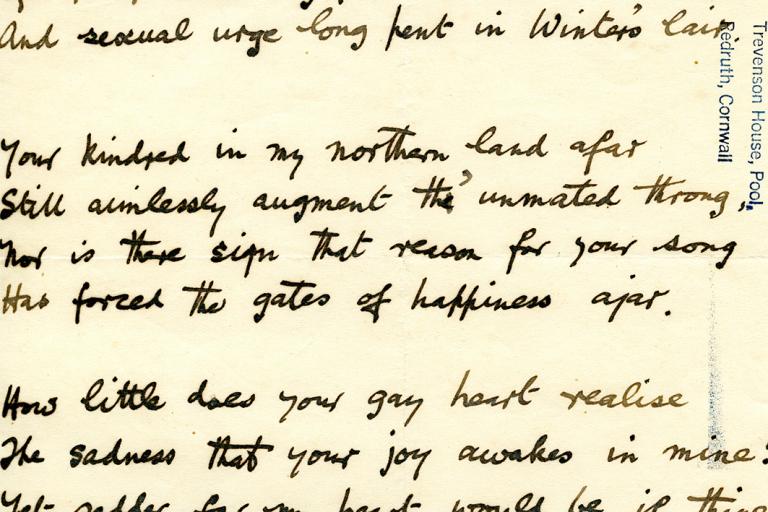 And sexual urge long pent in Winter's lair.
Your kindred in my northern land afar
Still aimlessly augment the' unmated throng,
Nor is there sign that reason for your song
Has forced the gates of happiness ajar.
How little does your gay heart realise
The sadness that your joy awakes in mine:
Yet sadder far my heart would be if thine
Trevenson House, Pool,
Redruth, Cornwall